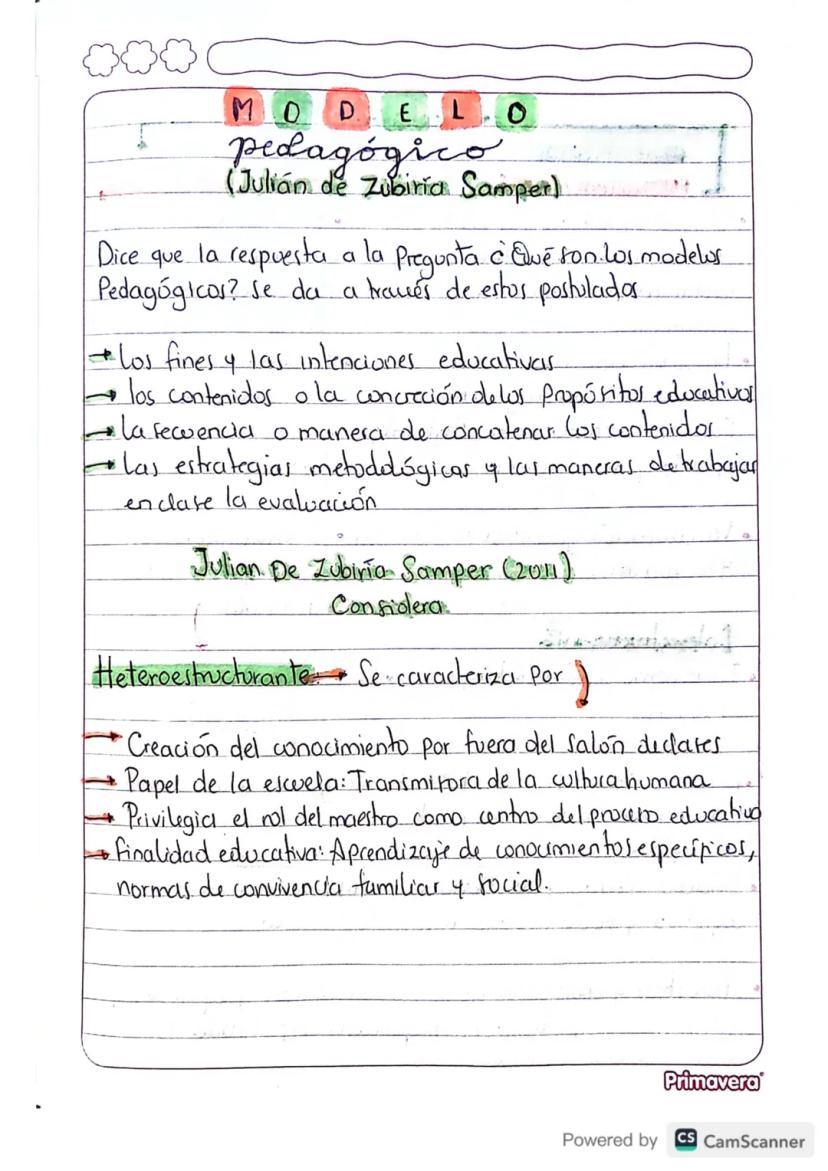 MODELO
pedagógico
(Julián de Zubiría Samper)
Dice que la respuesta a la Pregunta ¿Qué son los modelos
Pedagógicos? se da a través de estos postulados
→ Los fines y las intenciones educativas
→ los contenidos o la concreción de los Propósitos educativos
→ la secuencia o manera de concatenar los contenidos
→ Las estrategias metodológicas y las maneras de trabajar
en clase la evaluación
Julian De Zubiría Samper (2011)
Considera
Heteroestructurante → Se caracteriza Por
→ Creación del conocimiento por fuera del salón de clases
→ Papel de la escuela: Transmisora de la cultura humana
→ Privilegia el rol del maestro como centro del proceso educativo
→ finalidad educativa: Aprendizaje de conocimientos específicos,
normas de convivencia familiar y social.
Primavera
Powered by CS CamScanner